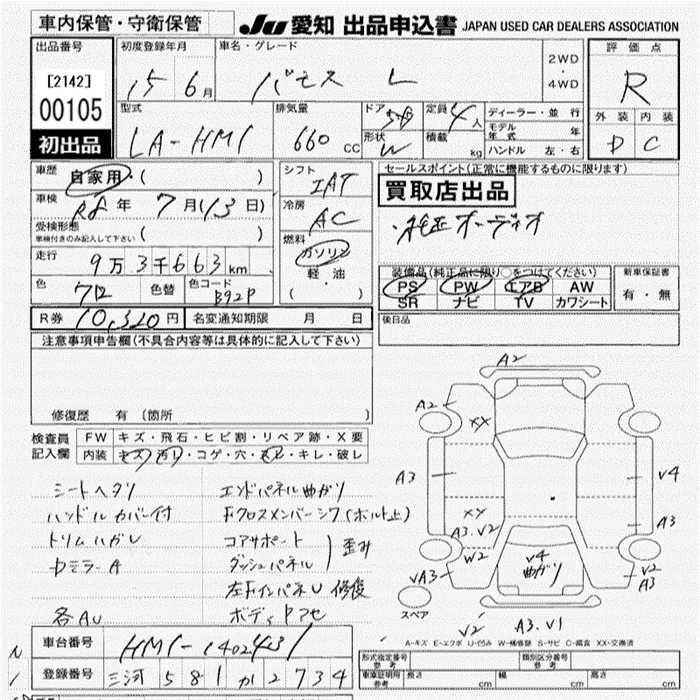 車内保管・守衛保管
JU 愛知 出品申込書 JAPAN USED CAR DEALERS ASSOCIATION
出品番号
[2142]
00105
初出品
初度登録年月
15 6月
車名・グレード
バモス L
2WD
・
4WD
評価点
R
外装 内装
D C
型式
LA-HM1
排気量
660 cc
ドア
形状
定員 4人
積載 kg
ディーラー・並行
モデル年式 年
ハンドル 左・右
車歴 自家用・( )
車検 R8年 7月(13日)
受検形態
車検付きのみ記入して下さい ( )
走行
9万3千663km
色 クロ 色替 色コード B92P
シフト
IAT
冷房
AC
燃料
ガソリン
軽・油
( ・ )
セールスポイント(正常に機能するものに限ります)
買取店出品
・純正オーディオ
装備品(純正品に限り○をつけてください)
PS PW エアB AW
SR ナビ TV カワシート
新車保証書
有・無
R券 10,320円 名変通知期限 月 日
後日品
注意事項申告欄(不具合内容等は具体的に記入して下さい)
修復歴 有(箇所 )
検査員記入欄
FW キズ・飛石・ヒビ割・リペア跡・X要
内装 キズ・汚レ・コゲ・穴・スレ・キレ・破レ
シートヘタリ
ハンドルカバー付
トリムハガレ
中ミラーA
各AU
エンドパネル曲ガリ
Fクロスメンバーシワ(ボルト止)
コアサポート
ダッシュパネル
歪み
左Fインパネし 修復
ボディPアセ
A2
A2
XX
A3
V4
XY
A3.V2
A3
W2
V4
曲ガリ
VA3
V2
A3
スペア
V2
A3.V1
A-キズ E-エクボ U-凹み W-補修跡 S-サビ C-腐食 XX-交換済
車台番号 HM1-1402431
登録番号 三河 581 か 2734
形式指定番号
参考
類別区分番号
参考
車庫証明用
参考
長さ cm 幅 cm 高さ cm